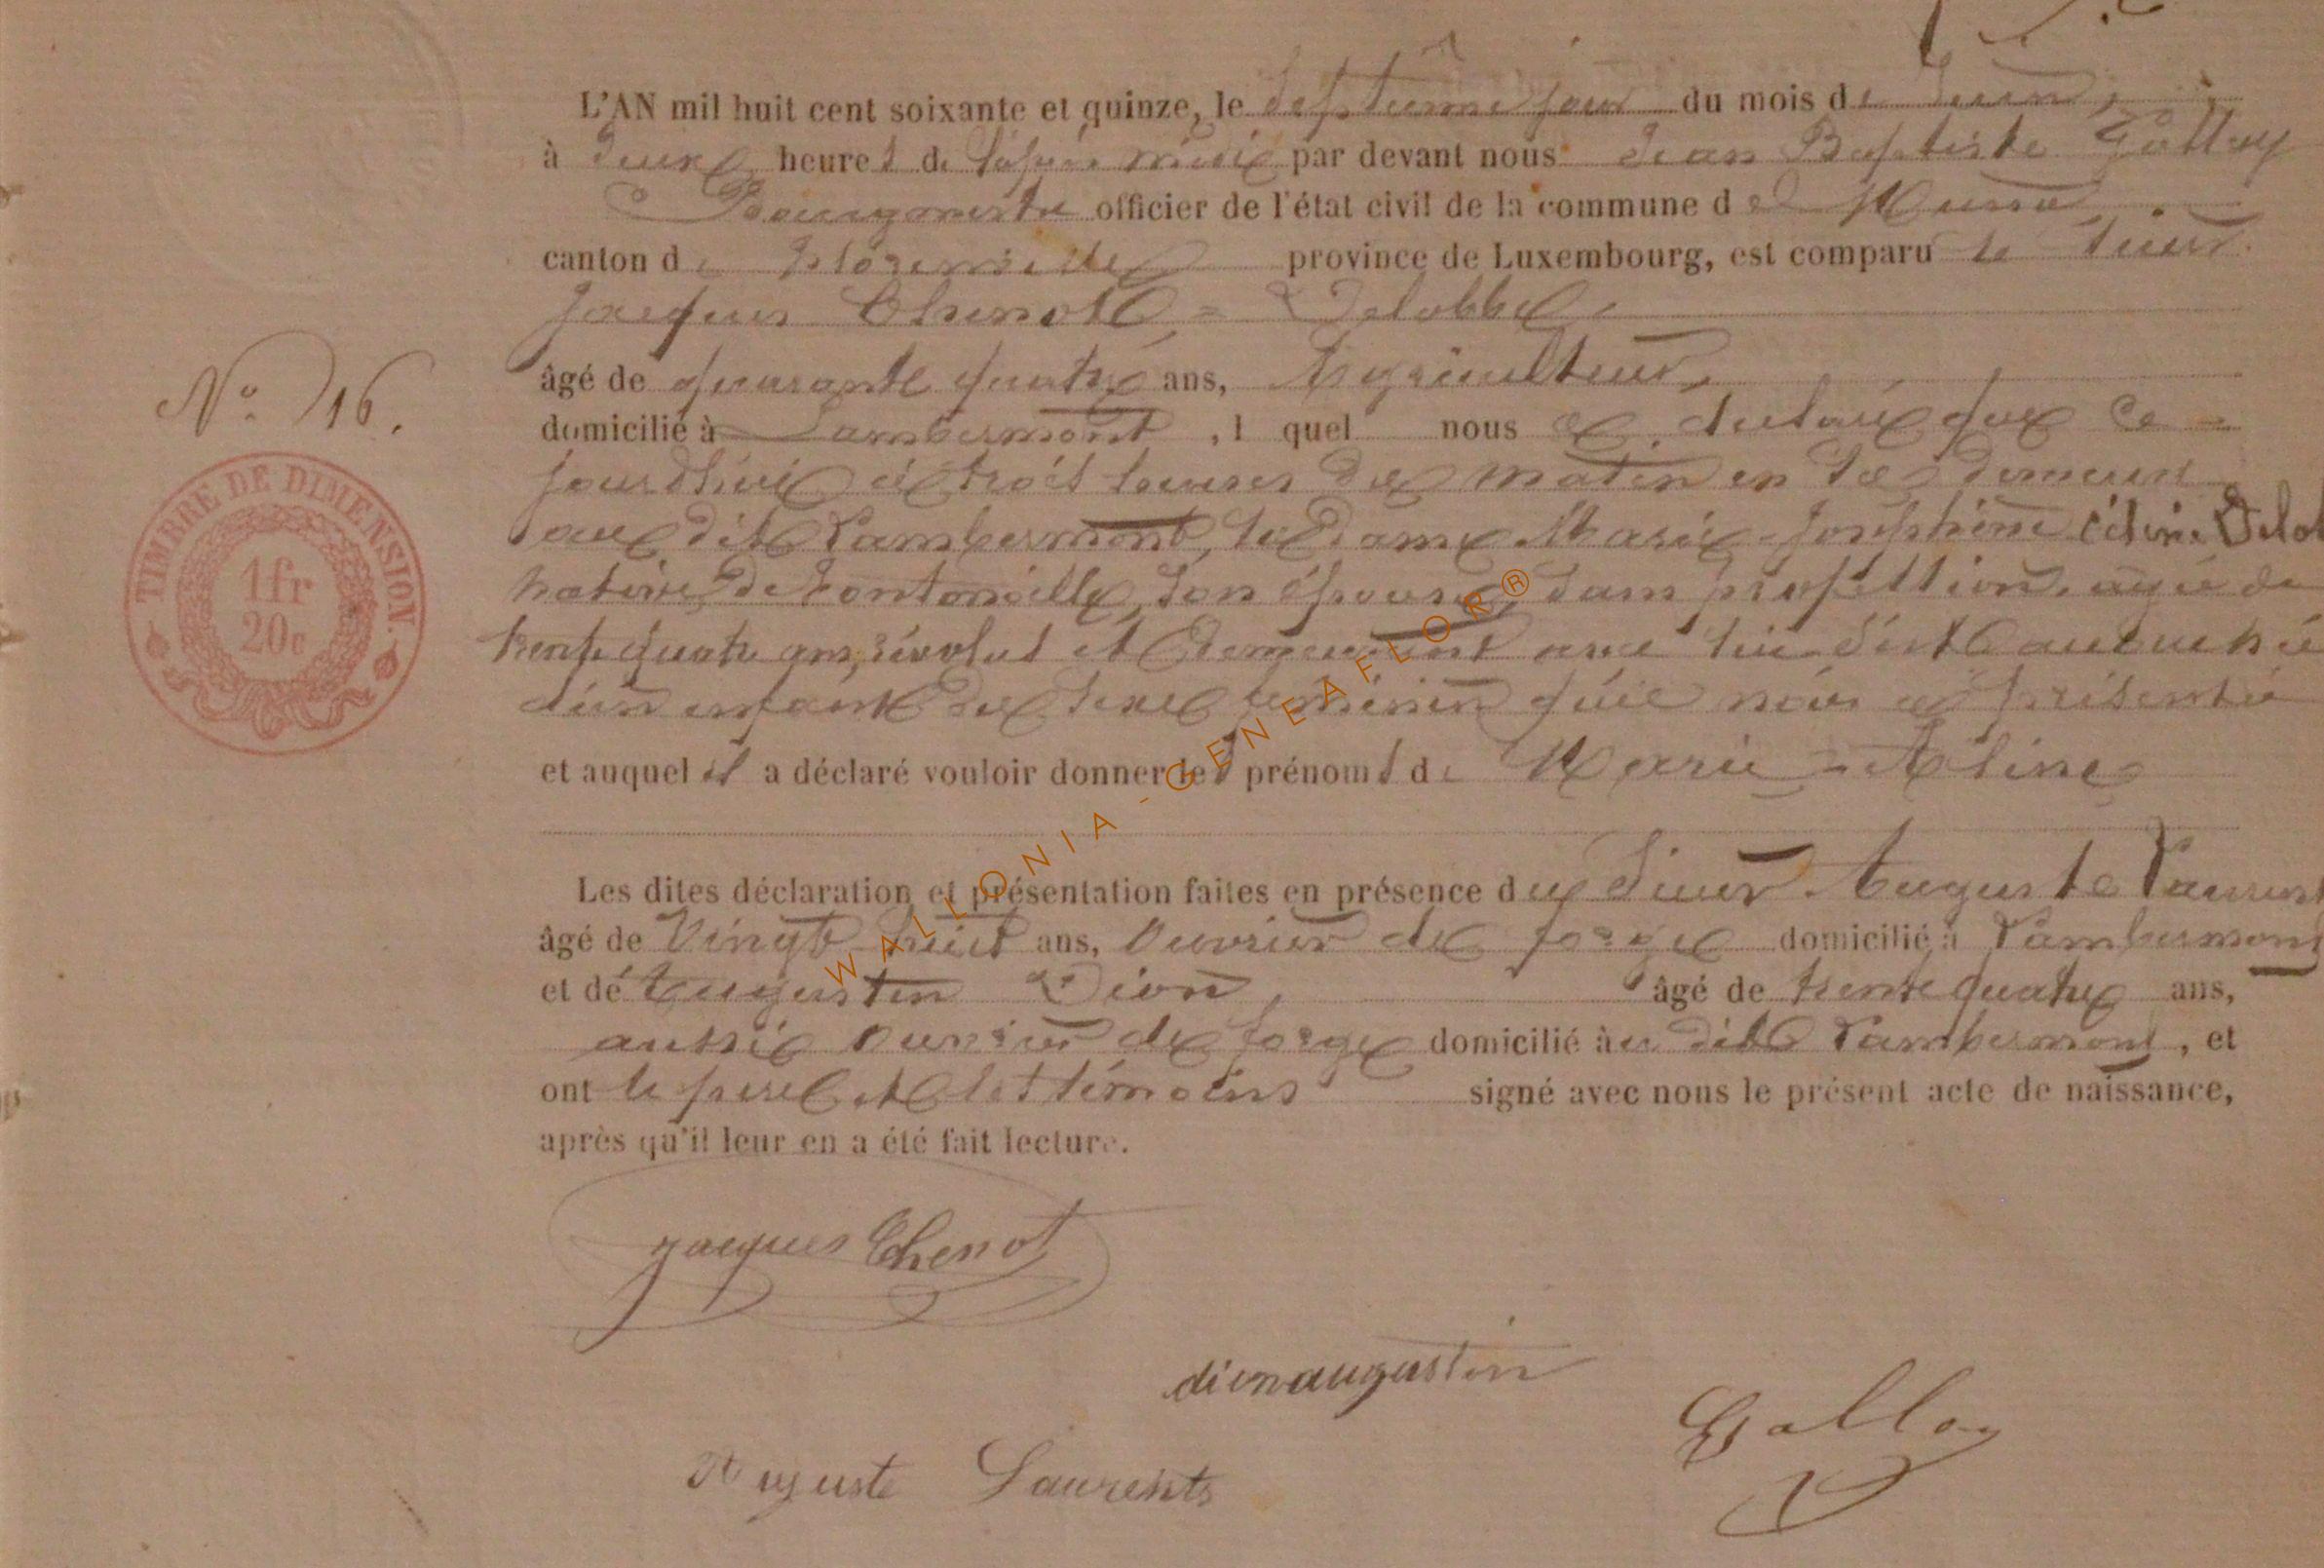 L'AN mil huit cent soixante et quinze, le septième jour du mois de Juin,
à deux heures de l'après midi par devant nous Jean Baptiste Galloy
Bourgmestre officier de l'état civil de la commune de Muno
canton de Florenville province de Luxembourg, est comparu le sieur
Jacques Chenot = Delobbe,
âgé de quarante quatre ans, Agriculteur,
domicilié à Lambermont, lequel nous a déclaré que ce =
jourd'hui à trois heures du matin en sa demeure
au dit Lambermont, la dame Marie-Joséphine Céline Delob
native de Fontenoille, son épouse, sans profession, agée de
trente quatre ans, révolus et demeurant avec lui s'est accouchée
d'un enfant du sexe féminin qu'il nous a présenté
et auquel il a déclaré vouloir donner les prénoms de Marie = Aline
Les dites déclaration et présentation faites en présence du sieur Auguste Laurent
âgé de vingt huit ans, ouvrier de forge domicilié à Lambermont
et de Augustin Dion, âgé de trente quatre ans,
aussi ouvrier de forge domicilié au dit Lambermont, et
ont le père et les témoins signé avec nous le présent acte de naissance,
après qu'il leur en a été fait lecture.
N° 16.
TIMBRE DE DIMENSION.
1fr
20c
WALLONIA - GENEAFLOR®
Jacques Chenot
dion augustin
Galloy
Auguste Laurents